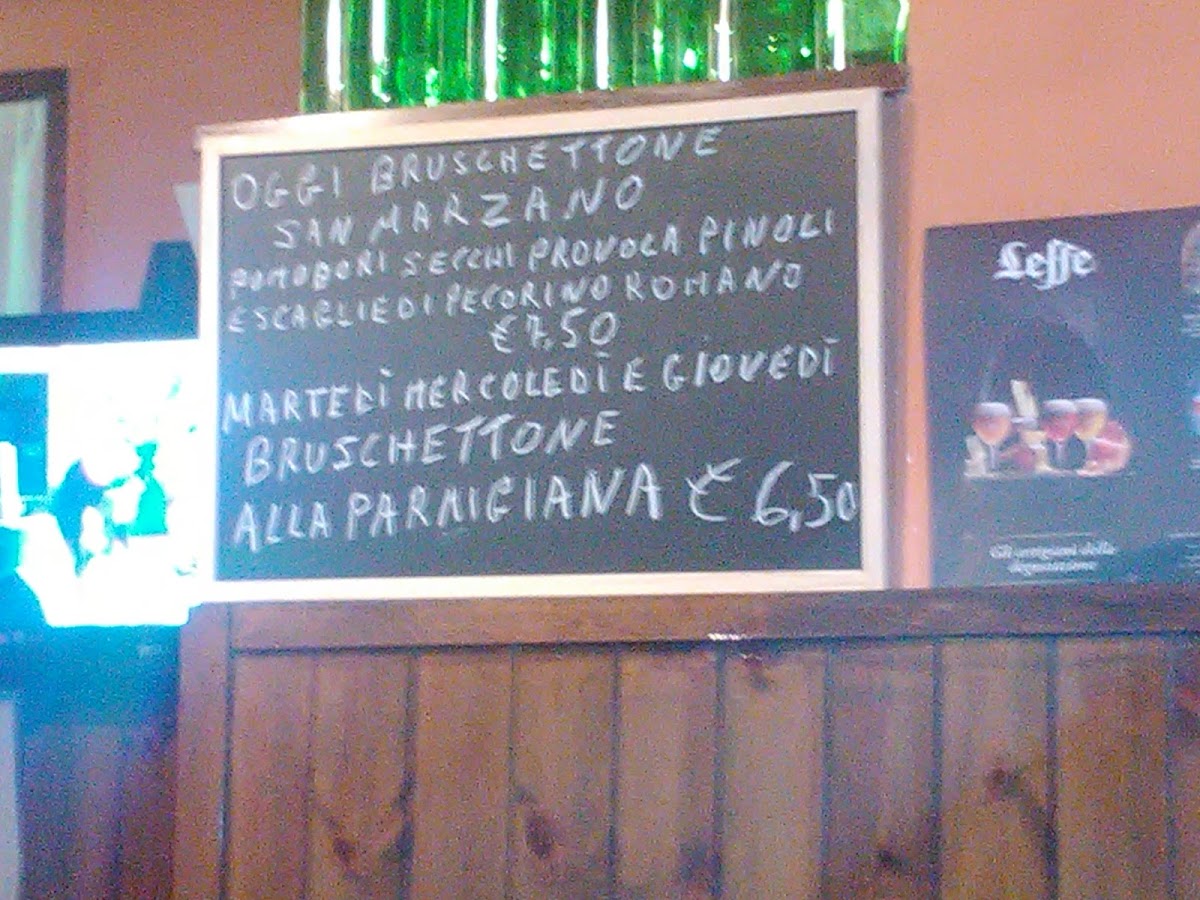 OGGI BRUSCHETTONE
SAN MARZANO
POMODORI SECCHI PROVOLA PINOLI
E SCAGLIE DI PECORINO ROMANO
€ 7,50
MARTEDÌ MERCOLEDÌ E GIOVEDÌ
BRUSCHETTONE
ALLA PARMIGIANA € 6,50
Leffe
Gli artigiani della
degustazione